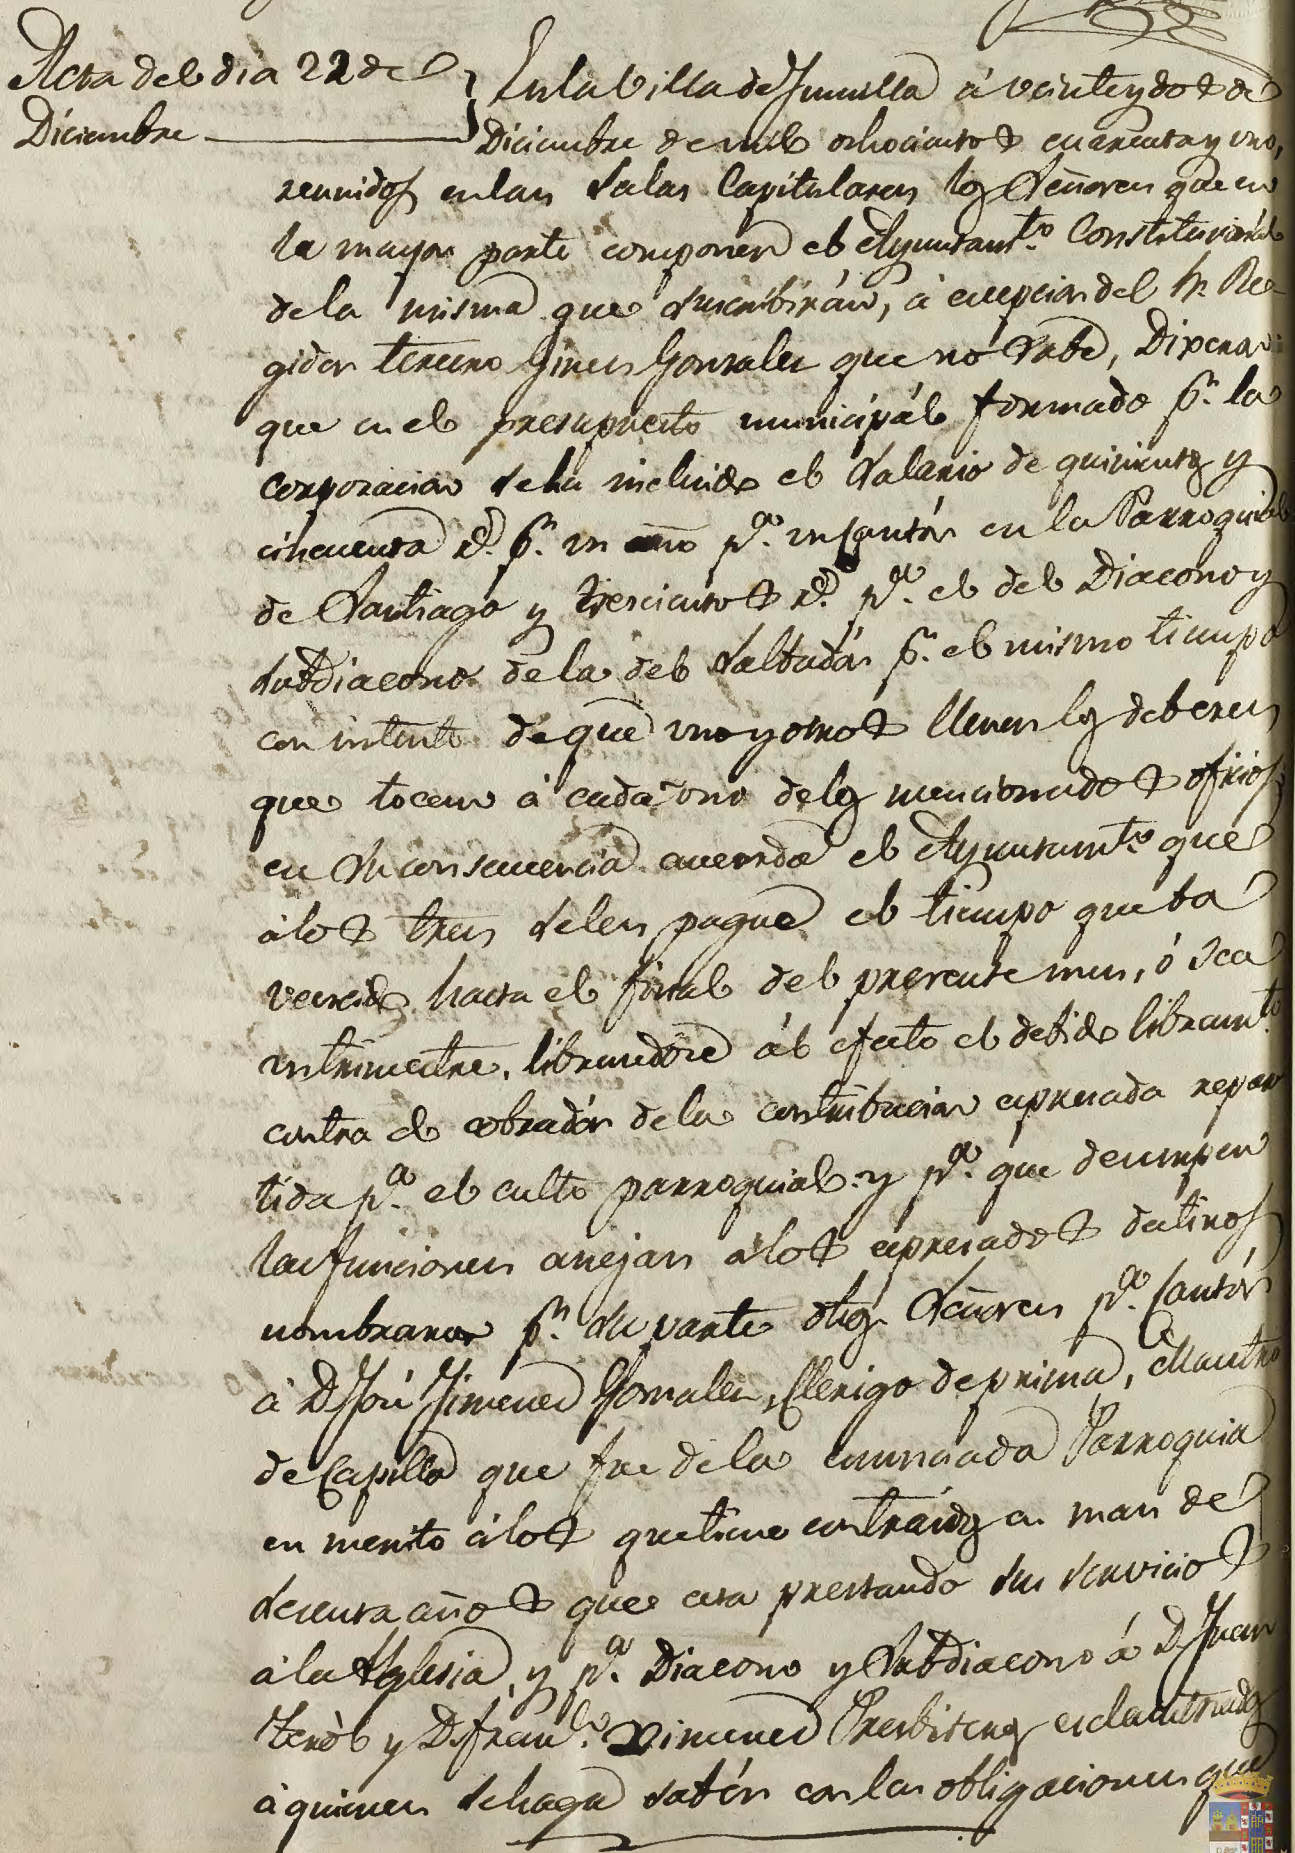 Acta del dia 22 de
Diciembre
En la Villa de Jumilla á veinte y dos de
Diciembre de mil ochocientos cuarenta y uno,
reunidos en las Salas Capitulares los Señores que en
la mayor parte componen el Ayuntamto. Constitucional
de la misma que suscribirán, á excepcion del Sr. Re-
gidor tercero Gines Gonzalez que no sabe, Dixeron:
que en el presupuesto municipál formado pr. la
corporacion se ha incluido el Salario de quinientos y
cincuenta rs. pr. un año pa. un Cantór en la Parroquial
de Santiago y trescientos rs. pa. el del Diacono y
subdiacono de la del Salbadór pr. el mismo tiempo
con intento de que uno y otros llenen los deberes
que tocan á cada uno de los mencionados oficios;
en su consecuencia acuerda el Ayuntamto. que
á los tres se les pague el tiempo que ba
vencido hasta el final del presente mes, ó sea
un trimestre, librandose ál efecto el debido libramto.
contra el cobradór de la contribucion expresada repar
tida pa. el culto parroquial: y pa. que desempeñen
las funciones anejas á los expresados destinos
nombraron pr. su parte dhos. Señores pa. Cantór
á D. José Jimenez Gonzalez, Clerigo de prima, Maestro
de Capilla que fue de la enunciada Parroquia
en merito á los que tiene contraidos en mas de
sesenta años que esta prestando sus servicios
á la Yglesia, y pa. Diacono y Subdiacono á D. Juan
Teról y D. Franco. Ximenez Presbiteros esclaustrados
á quienes se haga sabér con las obligaciones que